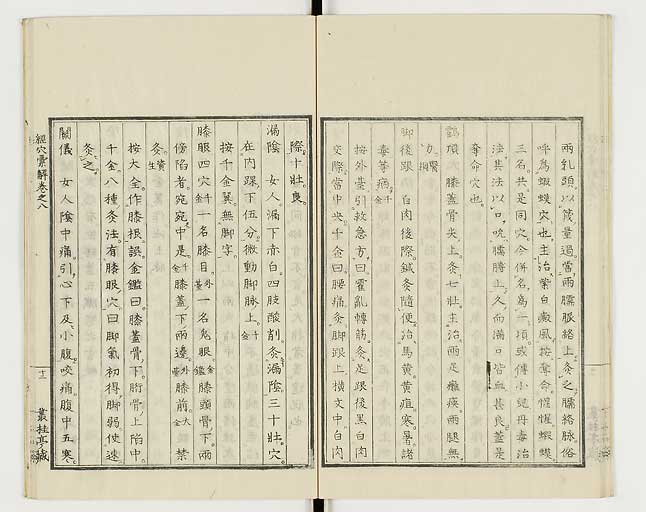 兩乳頭以筬量過當兩臑脈絡上灸之臑絡脉俗
呼爲蝦蟆穴也主治紫白癜風按奪命惺惺蝦蟆
三名共是同穴今併名爲一項或傳小兒丹毒治
法其法以口吮臑上久而滿口皆血甚良蓋是
奪命穴也
鶴頂 膝蓋骨尖上灸七壯主治兩足癱瘓兩腿無
力醫綱
脚後跟 白肉後際鍼灸隨便治馬黄黄疸寒暑諸
毒等病千
按外臺引救急方曰霍亂轉筋灸足跟後黑白肉
交際當中央千金曰腰痛灸脚跟上横文中白肉
際十壯良
漏陰 女人漏下赤白四肢酸削灸漏陰三十壯穴
在内踝下五分微動脚脉上千金
按千金翼無脚字
膝眼四穴千金一名膝目外臺一名鬼眼金鑑膝頭骨下兩
傍陷者宛宛中是千金膝蓋下兩邊外臺膝前大全禁
灸資生
按大全作膝根誤金鑑曰膝蓋骨下胻骨上陷中
千金八種灸法有膝眼穴曰脚氣初得脚弱使速
灸之
關儀 女人陰中痛引心下及小腹咬痛腹中五寒
經穴彙解卷之八
十三 叢桂亭藏